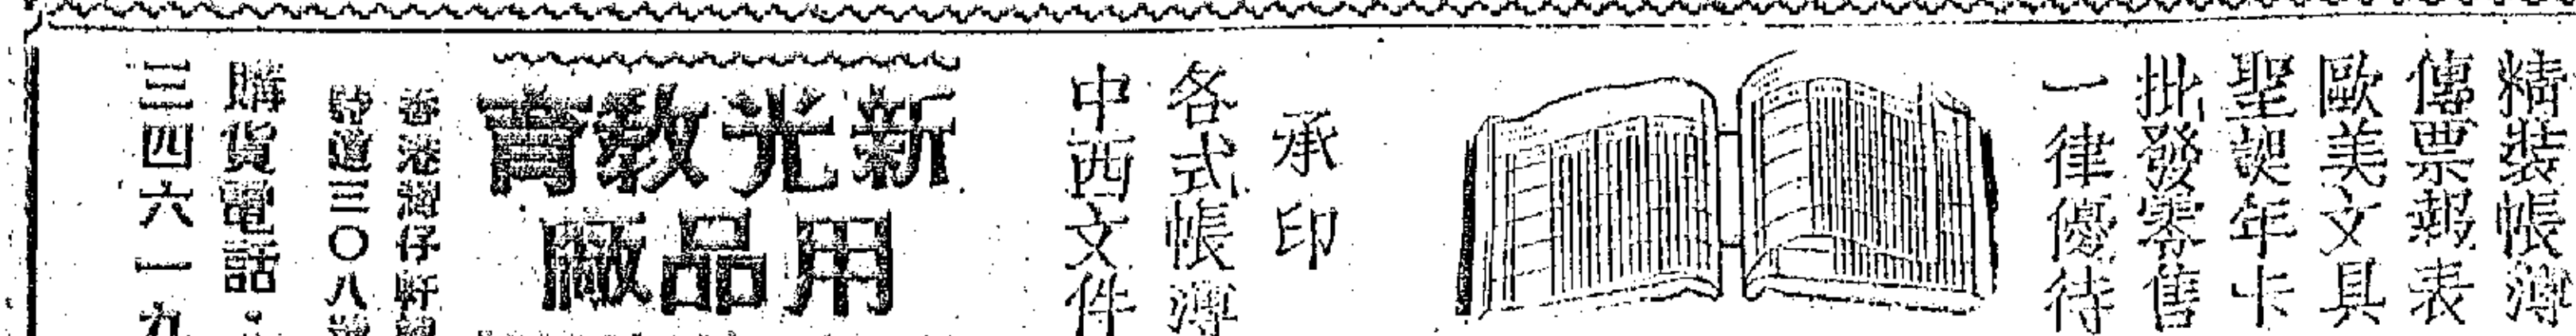 精裝帳簿
傳票報表
歐美文具
聖誕年卡
批發零售
一律優待
承印
各式帳簿
中西文件
新光教育
用品廠
香港灣仔軒
詩道三〇八
購貨電話：
三四六一九